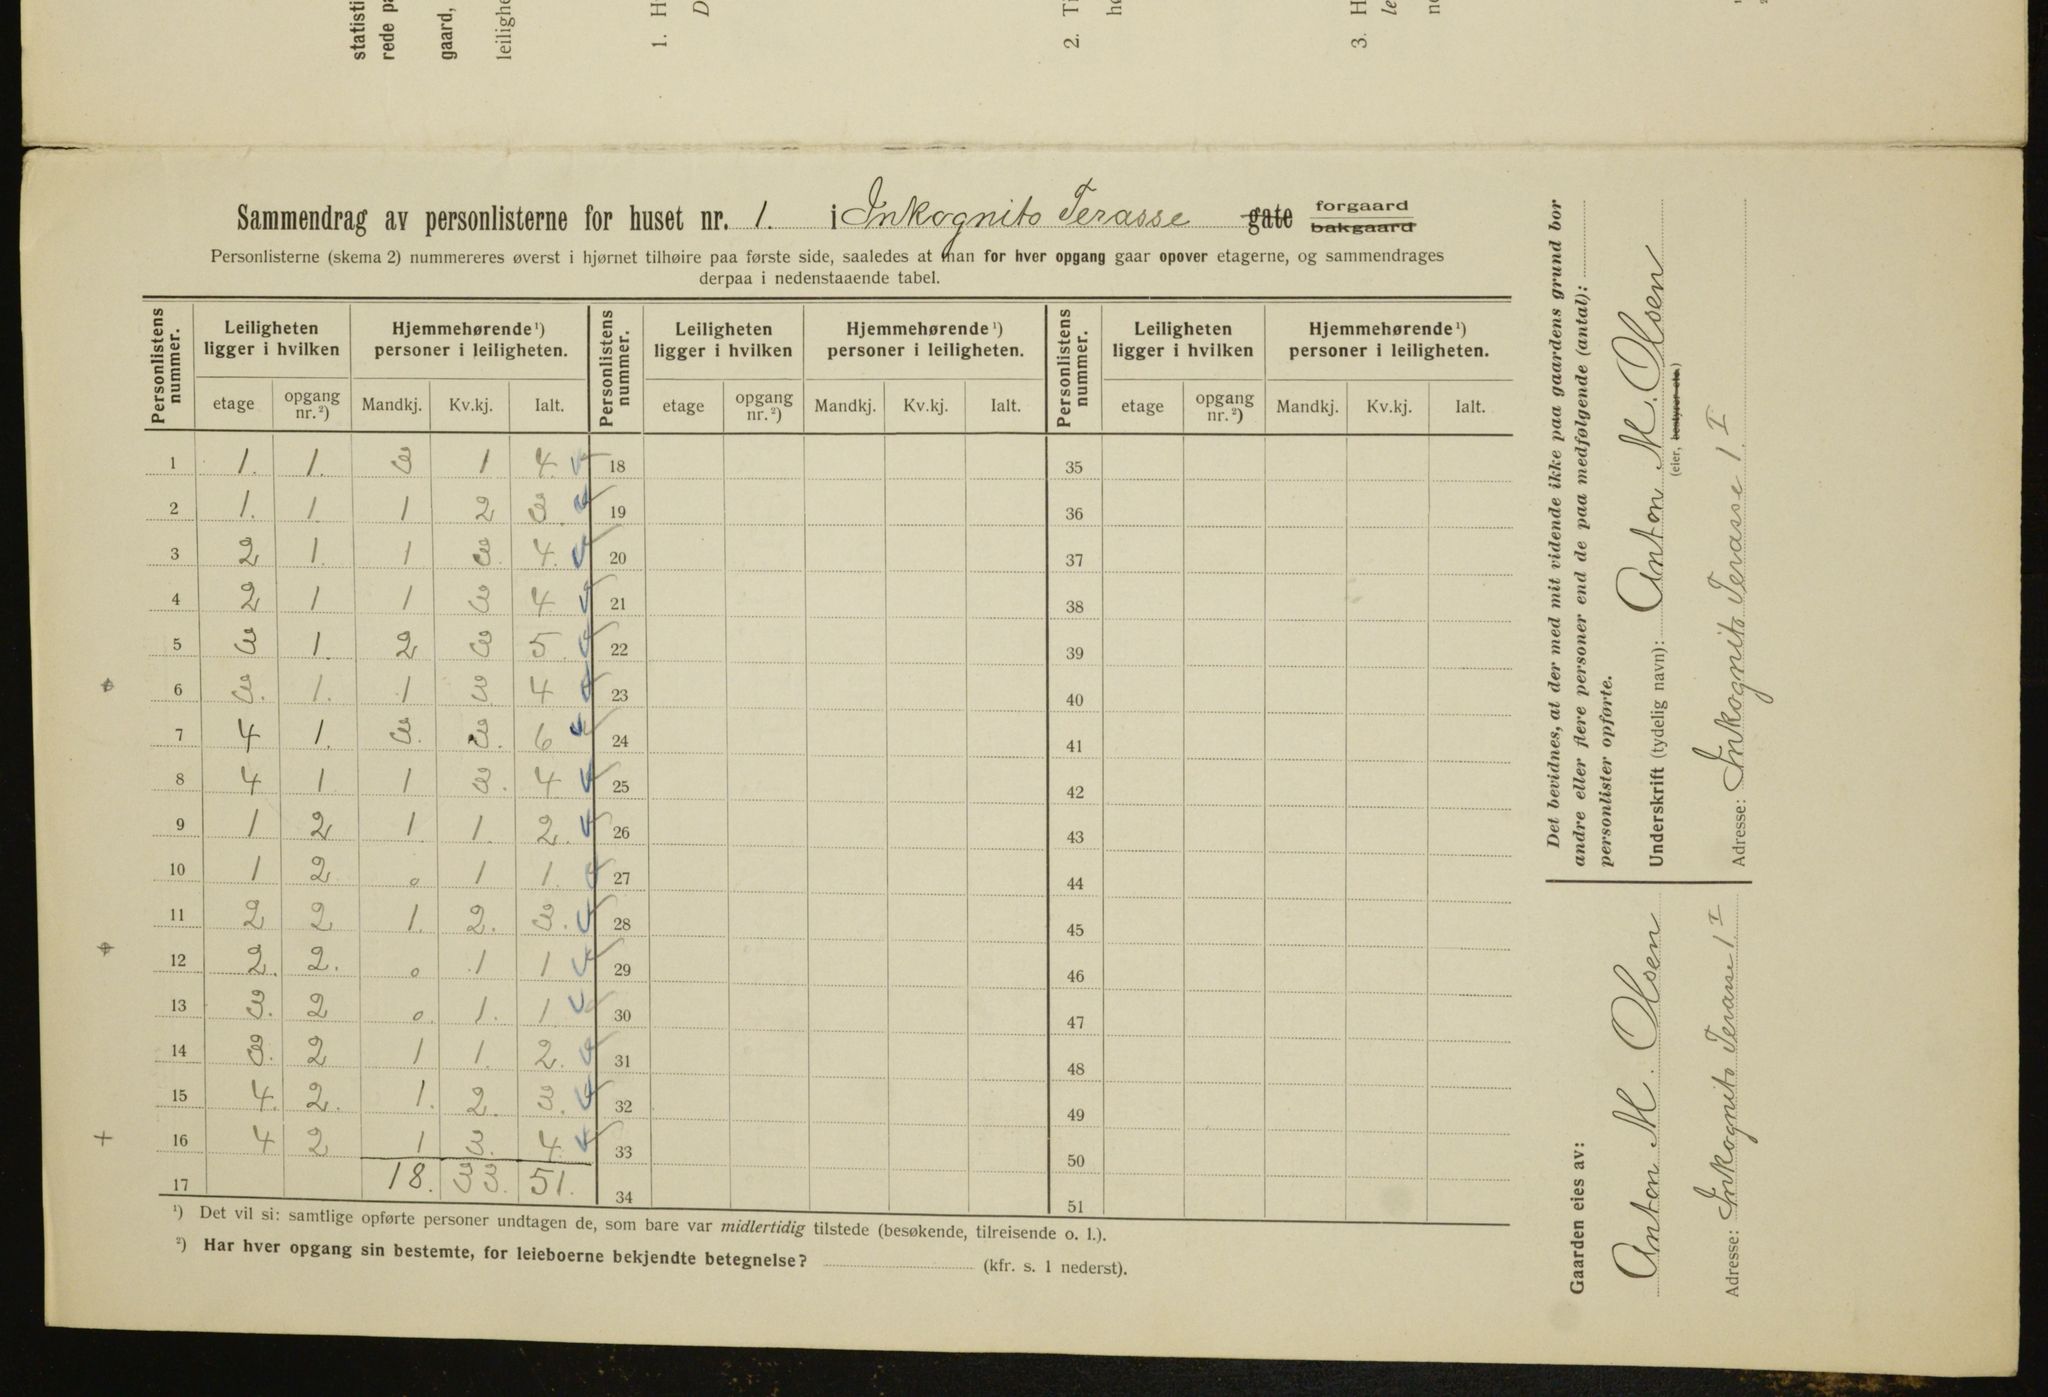 statisti
rede pa
gaard,
leilighe
1. H
D
2. Ti
hø
3. H
le
n
Sammendrag av personlisterne for huset nr. 1. i Inkognito Terasse gate forgaard
bakgaard
Personlisterne (skema 2) nummereres øverst i hjørnet tilhøire paa første side, saaledes at man for hver opgang gaar opover etagerne, og sammendrages
derpaa i nedenstaaende tabel.
Personlistens nummer. Leiligheten ligger i hvilken Hjemmehørende ¹) personer i leiligheten. Personlistens nummer. Leiligheten ligger i hvilken Hjemmehørende ¹) personer i leiligheten. Personlistens nummer. Leiligheten ligger i hvilken Hjemmehørende ¹) personer i leiligheten.
etage opgang nr.²) Mandkj. Kv.kj. Ialt. etage opgang nr.²) Mandkj. Kv.kj. Ialt. etage opgang nr.²) Mandkj. Kv.kj. Ialt.
1 1. 1. 3 1 4. 18 35
2 1. 1. 1 2 3. 19 36
3 2 1. 1 3. 4. 20 37
4 2 1 1 3 4 21 38
5 3 1. 2 3 5. 22 39
6 3. 1. 1 3 4 23 40
7 4 1. 3. 3. 6 24 41
8 4 1 1 3. 4 25 42
9 1 2 1 1. 2. 26 43
10 1 2 0 1 1. 27 44
11 2 2 1. 2. 3. 28 45
12 2. 2. 0 1 1 29 46
13 3. 2 0. 1. 1 30 47
14 3. 2 1 1. 2. 31 48
15 4. 2. 1. 2. 3. 32 49
16 4 2 1 3. 4 33 50
17 18. 33. 51. 34 51
¹) Det vil si: samtlige opførte personer undtagen de, som bare var midlertidig tilstede (besøkende, tilreisende o. l.).
²) Har hver opgang sin bestemte, for leieboerne bekjendte betegnelse? (kfr. s. 1 nederst).
Det bevidnes, at der med mit vidende ikke paa gaardens grund bor
andre eller flere personer end de paa medfølgende (antal):
personlister opførte.
Underskrift (tydelig navn): Anton M. Olsen
(eier, bestyrer etc.)
Adresse: Inkognito Terasse 1. I
Gaarden eies av:
Anton M. Olsen
Adresse: Inkognito Terasse 1. I